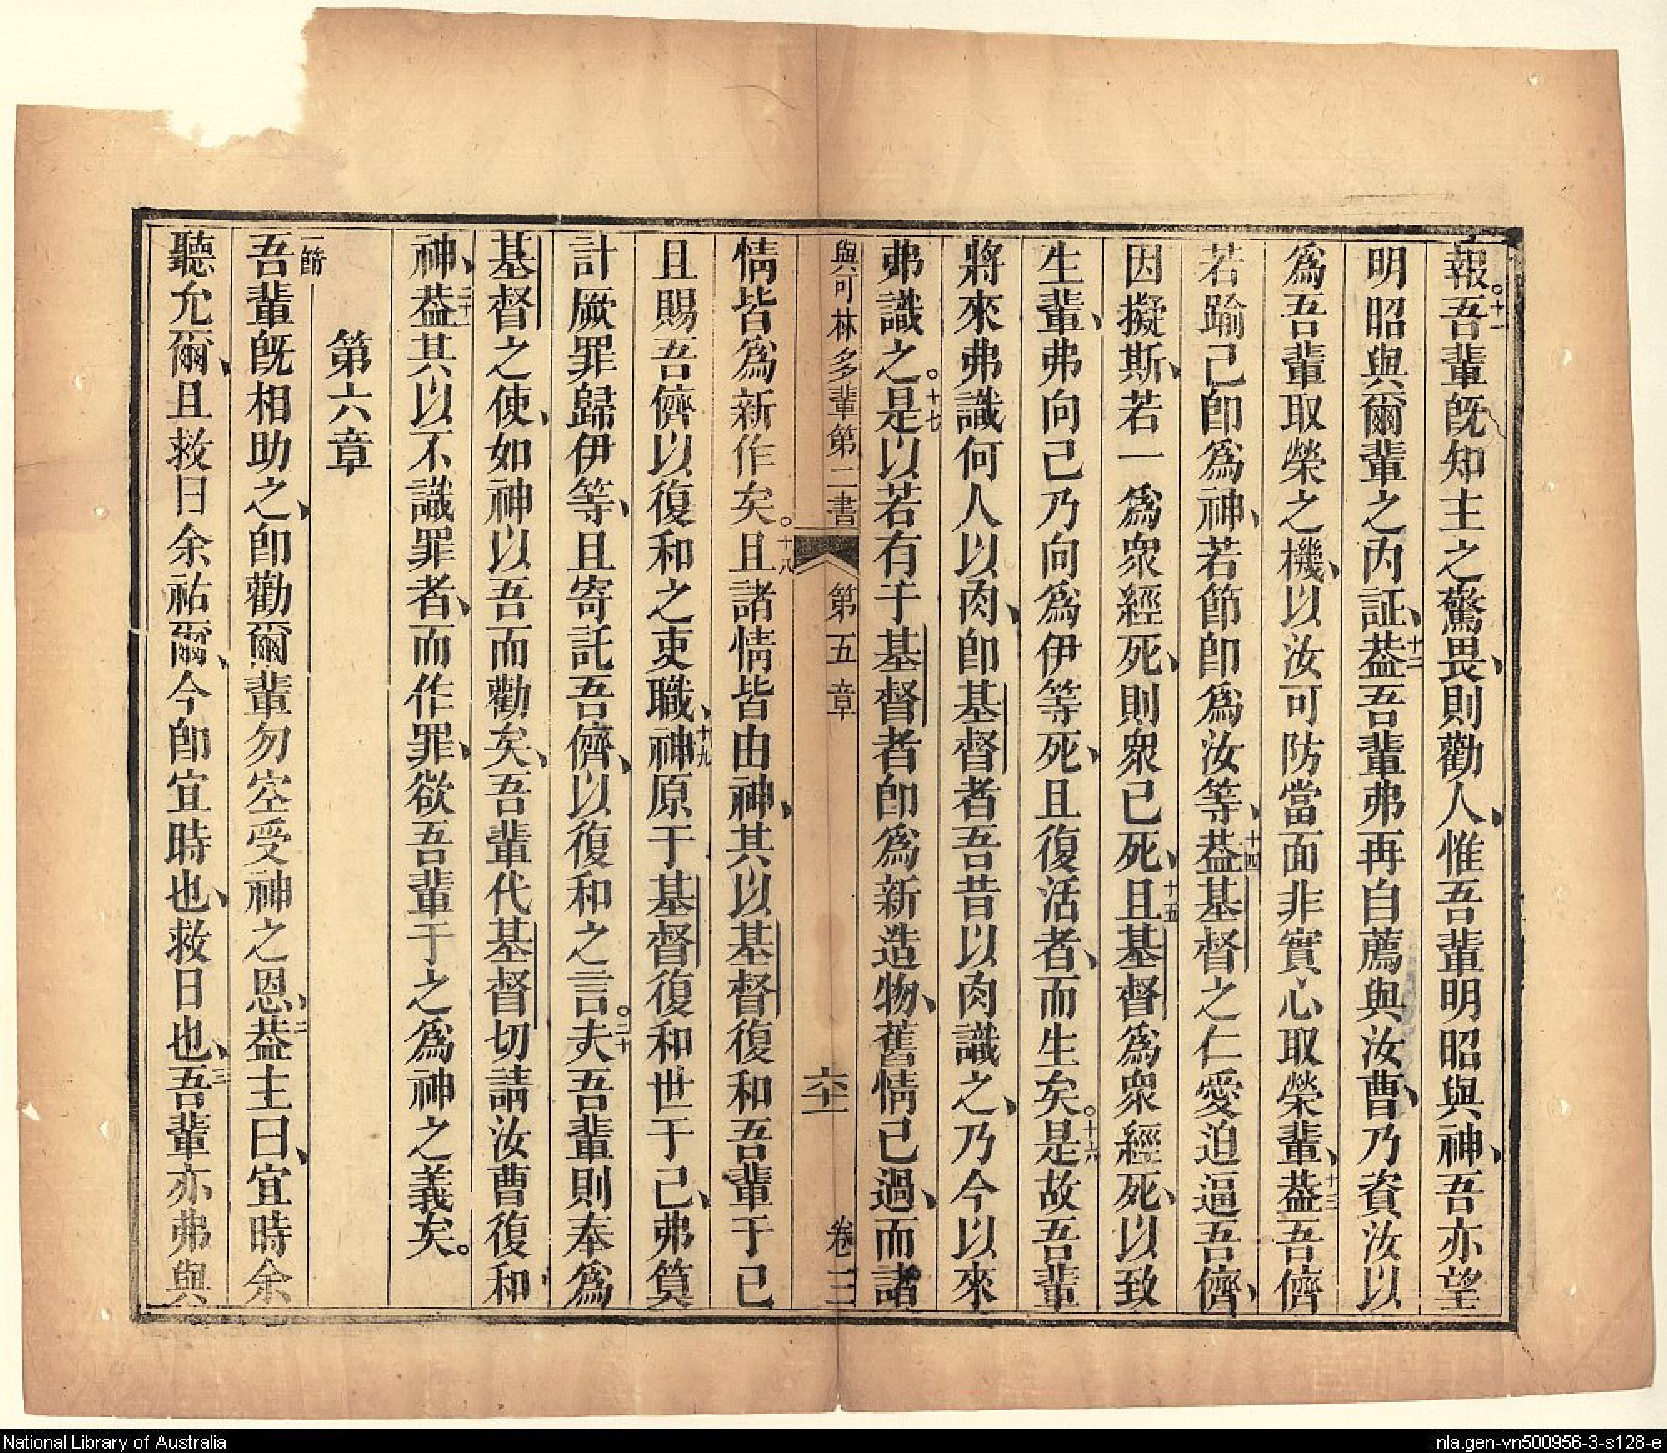 報。十一吾輩旣知主之驚畏、則勸人、惟吾輩明昭與神、吾亦望
明昭與爾輩之內証、十二葢吾輩弗再自薦與汝曹、乃資汝以
爲吾輩取榮之機、以汝可防當面非實心取榮輩、十三葢吾儕
若踰己卽爲神、若節卽爲汝等、十四葢基督之仁愛迫逼吾儕、
因擬斯、若一爲衆經死、則衆已死、十五且基督爲衆經死、以致
生輩、弗向己乃向爲伊等死、且復活者、而生矣。十六是故吾輩
將來弗識何人以肉、卽基督者吾昔以肉識之、乃今以來
弗識之。十七是以若有于基督者卽爲新造物、舊情已過、而諸
與可林多輩第二書 第五章 六二 卷三
情皆爲新作矣。十八且諸情皆由神、其以基督復和吾輩于己
且賜吾儕以復和之吏職、十九神原于基督復和世于己、弗筭
計厥罪歸伊等、且寄託吾儕、以復和之言。二十夫吾輩則奉爲
基督之使、如神以吾而勸矣、吾輩代基督切請汝曹復和
神、二十一葢其以不識罪者、而作罪、欲吾輩于之爲神之義矣。
第六章
一節吾輩旣相助之、卽勸爾輩勿空受神之恩、二葢主曰、宜時余
聽允爾、且救日余祐爾、今卽宜時也、救日也、三吾輩亦弗與
National Library of Australia
nla.gen-vn500956-3-s128-e